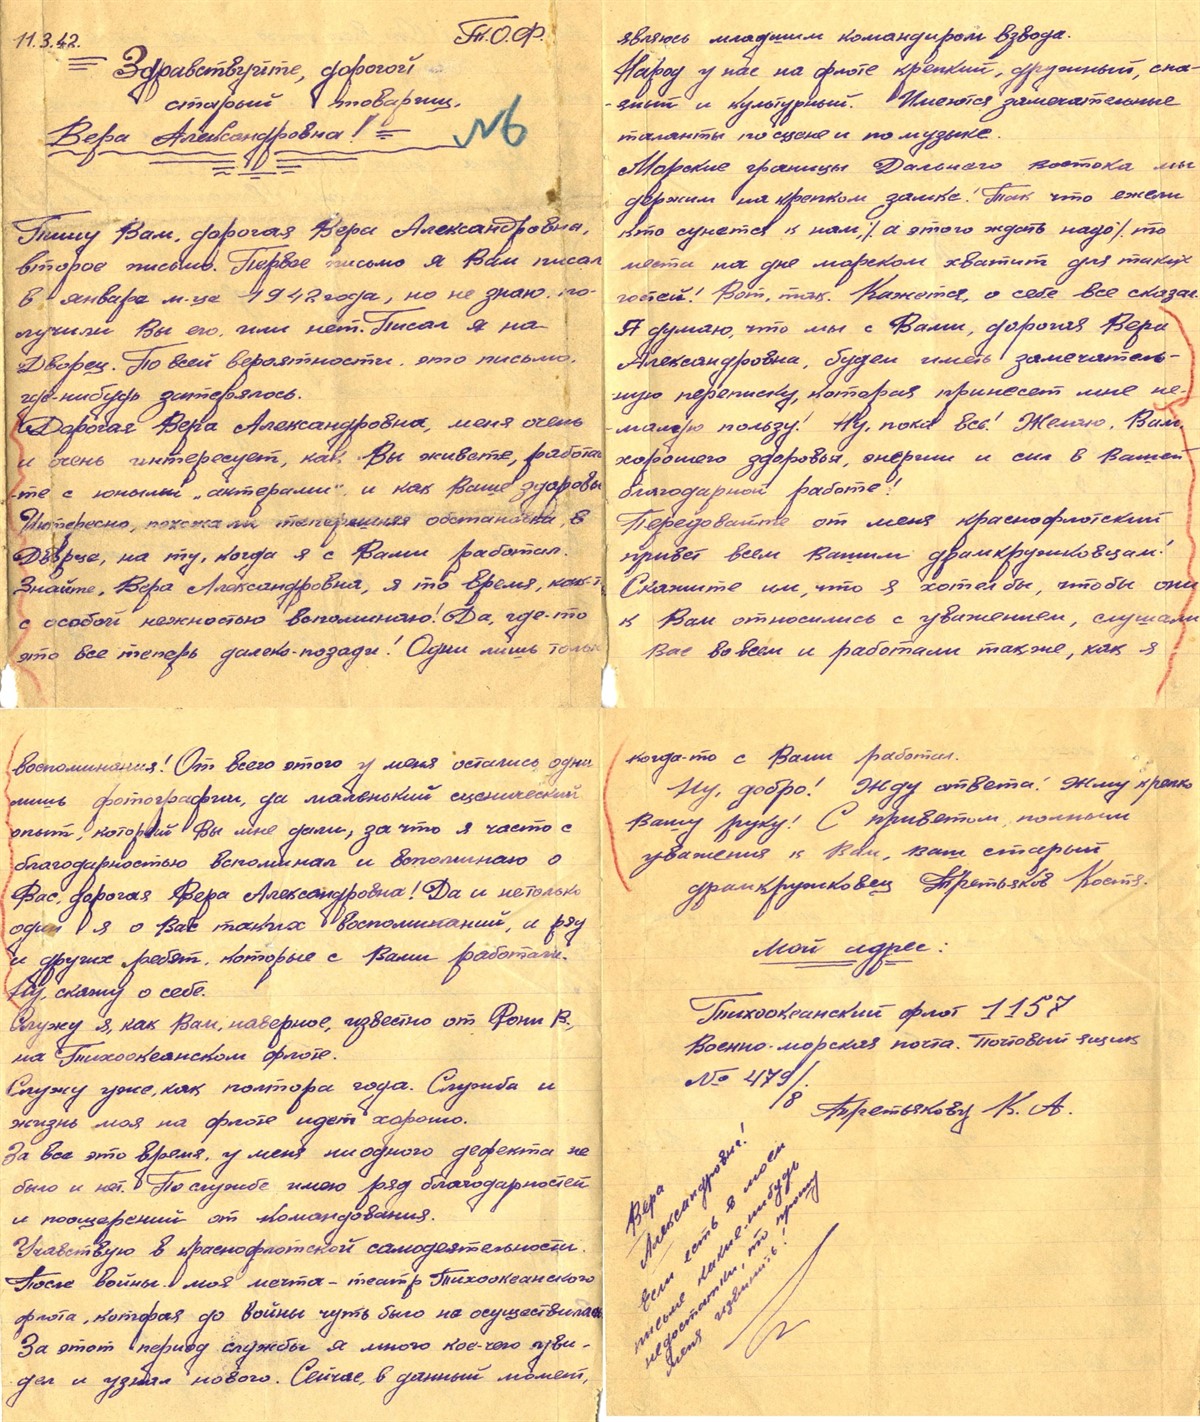 11.3.42. Т.О.Ф.
Здравствуйте, дорогой
старый товарищ,
Вера Александровна!
№6
Пишу Вам, дорогая Вера Александровна,
второе письмо. Первое письмо я Вам писал
в январе м-це 1942 года, но не знаю по-
лучили Вы его, или нет. Писал я на
Дворец. По всей вероятности, это письмо,
где-нибудь затерялось.
Дорогая Вера Александровна, меня очень
и очень интересует, как Вы живете, работае-
-те с юными „актерами", и как Ваше здоровье
Интересно, похожа ли теперешняя обстановка, в
Дворце, на ту, когда я с Вами работал.
Знайте, Вера Александровна, я то время, как-то
с особой нежностью вспоминаю! Да, где-то
это все теперь далеко-позади! Одни лишь только
воспоминания! От всего этого у меня остались одни
лишь фотографии, да маленький сценический
опыт, который Вы мне дали, за что я часто с
благодарностью вспоминал и вспоминаю о
Вас, дорогая Вера Александровна! Да и нетолько
один я о Вас таких воспоминаний, и ряд
и других ребят, которые с Вами работали.
Ну, скажу о себе.
Служу я, как Вам, наверное, известно от Фони В.,
на Тихоокеанском флоте.
Служу уже, как полтора года. Служба и
жизнь моя на флоте идет хорошо.
За все это время, у меня ниодного дефекта не
было и нет. По службе имею ряд благодарностей
и поощрений от командования.
Учавствую в краснофлотской самодеятельности.
После войны моя мечта – театр Тихоокеанского
флота, которая до войны чуть было не осуществилась
За этот период службы я много кое-чего уви-
дел и узнал нового. Сейчас, в данный момент,
являюсь младшим командиром взвода.
Народ у нас на флоте крепкий, дружный, спа-
-янный и культурный. Имеются замечательные
таланты по сцене и по музыке.
Морские границы Дальнего востока мы
держим на крепком замке! Так что ежели
кто сунется к нам, /. а этого ждать надо /. то
места на дне морском хватит для таких
гостей! Вот, так. Кажется, о себе все сказал
Я думаю, что мы с Вами, дорогая Вера
Александровна, будем иметь замечатель-
ную переписку, которая принесет мне не-
-малую пользу! Ну, пока все! Желаю, Вам,
хорошего здоровья, энергии и сил в Вашей
благодарной работе!
Передовайте от меня краснофлотский
привет всем Вашим драмкружковцам!
Скажите им, что я хотел бы, чтобы они
к Вам относились с уважением, слушали
Вас во всем и работали также, как я
когда-то с Вами работал.
Ну, добро! Жду ответа! Жму крепко
Вашу руку! С приветом, полными
уважения к Вам, Ваш старый
драмкружковец Третьяков Костя.
Мой адрес:
Тихоокеанский флот 1157
Военно-морская почта. Почтовый ящик
№ 479/8
Третьякову К. А.
Вера
Александровна!
Если есть в моем
письме какие-нибудь
недостатки, то прошу
меня извинить!